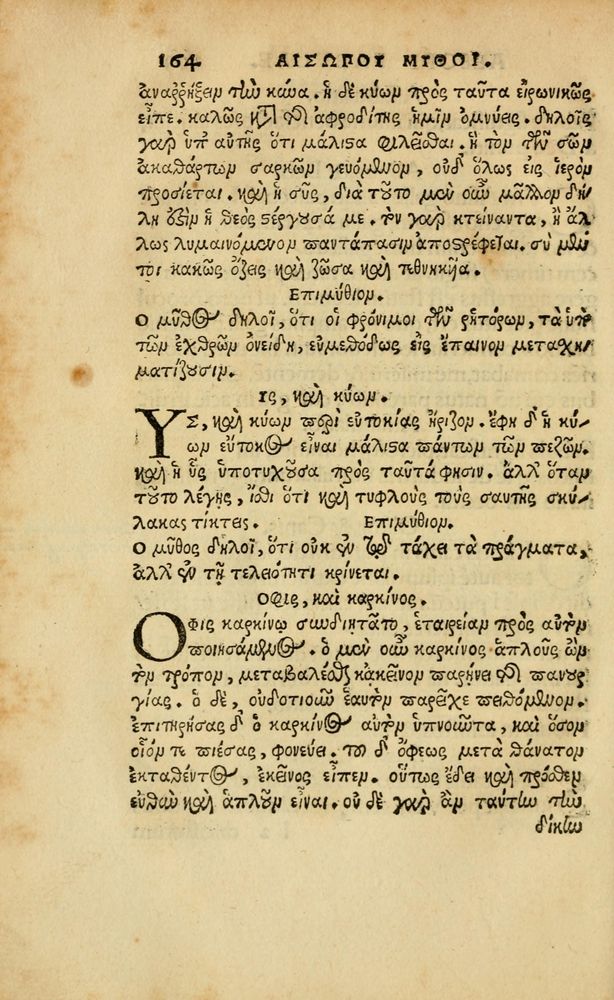 164 ΑΙΣΩΠΟΥ ΜΥΘΟΙ.
ἀναῤῥήξειν τὴν κύνα. ἡ δὲ κύων πρὸς ταῦτα εἰρωνικῶς
εἶπε. καλῶς κατὰ τῆς ἀφροδίτης ἡμῖν ὀμνύεις. δηλοῖς
γὰρ ὑπ' αὐτῆς ὅτι μάλιστα φιλεῖσθαι. ἣ τὸν τῶν σῶν
ἀκαθάρτων σαρκῶν γευόμενον, οὐδ' ὅλως εἰς ἱερὸν
προσίεται. καὶ ἡ σῦς, διὰ τοῦτο μὲν οὖν μᾶλλον δή
λη ἐστὶν ἡ θεὸς στέργουσά με. τὸν γὰρ κτείναντα, ἢ ἄλ
λως λυμαινόμενον παντάπασιν ἀποστρέφεται. σὺ μέν
τοι κακῶς ὄζεις καὶ ζῶσα καὶ τεθνηκῆα.
Επιμύθιον.
Ο μῦθος δηλοῖ, ὅτι οἱ φρόνιμοι τῶν ῥητόρων, τὰ ὑπὸ
τῶν ἐχθρῶν ὀνείδη, εὐμεθόδως εἰς ἔπαινον μετασχη
ματίζουσιν.
Υς, καὶ κύων.
ΥΣ, καὶ κύων περὶ εὐτοκίας ἤριζον. ἔφη δ' ἡ κύ
ων εὔτοκος εἶναι μάλιστα πάντων τῶν πεζῶν.
καὶ ἡ ὗς ὑποτυχοῦσα πρὸς ταῦτά φησιν. ἀλλ' ὅταν
τοῦτο λέγῃς, ἴσθι ὅτι καὶ τυφλοὺς τοὺς σαυτῆς σκύ
λακας τίκτεις. Επιμύθιον.
Ο μῦθος δηλοῖ, ὅτι οὐκ ἐν τῷ τάχει τὰ πράγματα,
ἀλλ' ἐν τῇ τελειότητι κρίνεται.
Οφις, καὶ καρκίνος.
ΟΦις καρκίνῳ συνδιῃτᾶτο, ἑταιρείαν πρὸς αὐτὸν
ποιησάμενος. ὁ μὲν οὖν καρκίνος ἁπλοῦς ὢν
τὸν τρόπον, μεταβαλέσθαι κἀκεῖνον παρῄνει τῆς πανουρ
γίας. ὁ δὲ, οὐδοτιοῦν ἑαυτὸν παρεῖχε πειθόμενον.
ἐπιτηρήσας δ' ὁ καρκίνος αὐτὸν ὑπνοῦντα, καὶ ὅσον
οἷόν τε πιέσας, φονεύει. τοῦ δ' ὄφεως μετὰ θάνατον
ἐκταθέντος, ἐκεῖνος εἶπεν. οὕτως ἔδει καὶ πρόσθεν
εὐθὺν καὶ ἁπλοῦν εἶναι. οὐ δὲ γὰρ ἂν ταύτην τὴν
δίκην